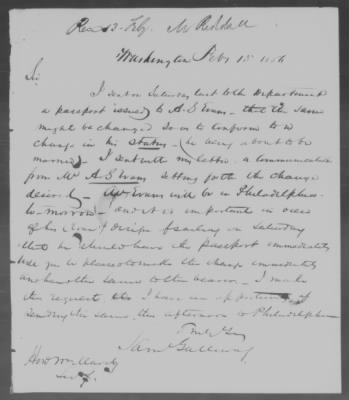 Rec 13 Feby. Mr Riddall
Washington Feby 13 1856
Sir
I sent on Saturday last to the Department
a passport issued to A. S. Evans - that the same
might be changed so as to conform to a
change in his status - (he being about to be
married) - I sent with my letter a communication
from Mr A. S. Evans setting forth the change
desired - Mr Evans will be in Philadelphia
to-morrow - and it is important in view
of his design of sailing on Saturday
that he should have the passport immediately
you to please to make the change immediately
and hand the same to the bearer - I make
this request, as I have an opportunity of
sending the same this afternoon to Philadelphia
Truly Yrs
Sam Galloway
Hon Wm L Marcy
Secy.